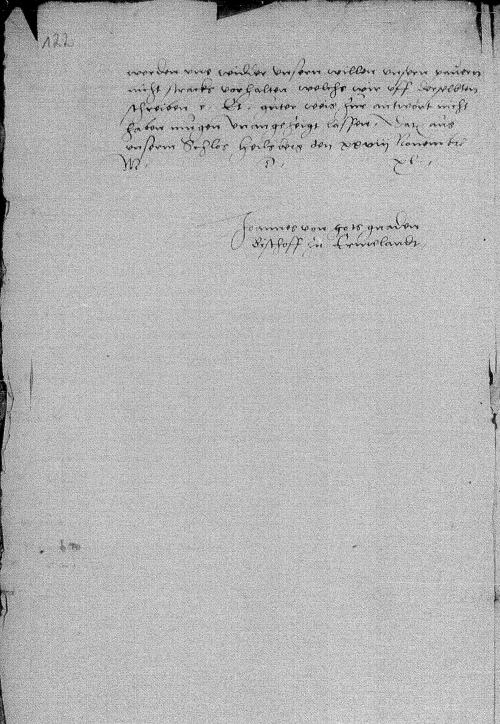 122
werden uns widder unsern willen unsern pauern
nicht stracks vorhalten welchs wir uff deßelbten
schreiben e. Et. guter weis zur antwort nicht
haben mugen unangezeigt lassen. Datum aus
unserm Schlos Heilsberg den xxviii Novembris
M. D. xl.
Joannes von gots gnaden
Bischoff zu Ermelandt